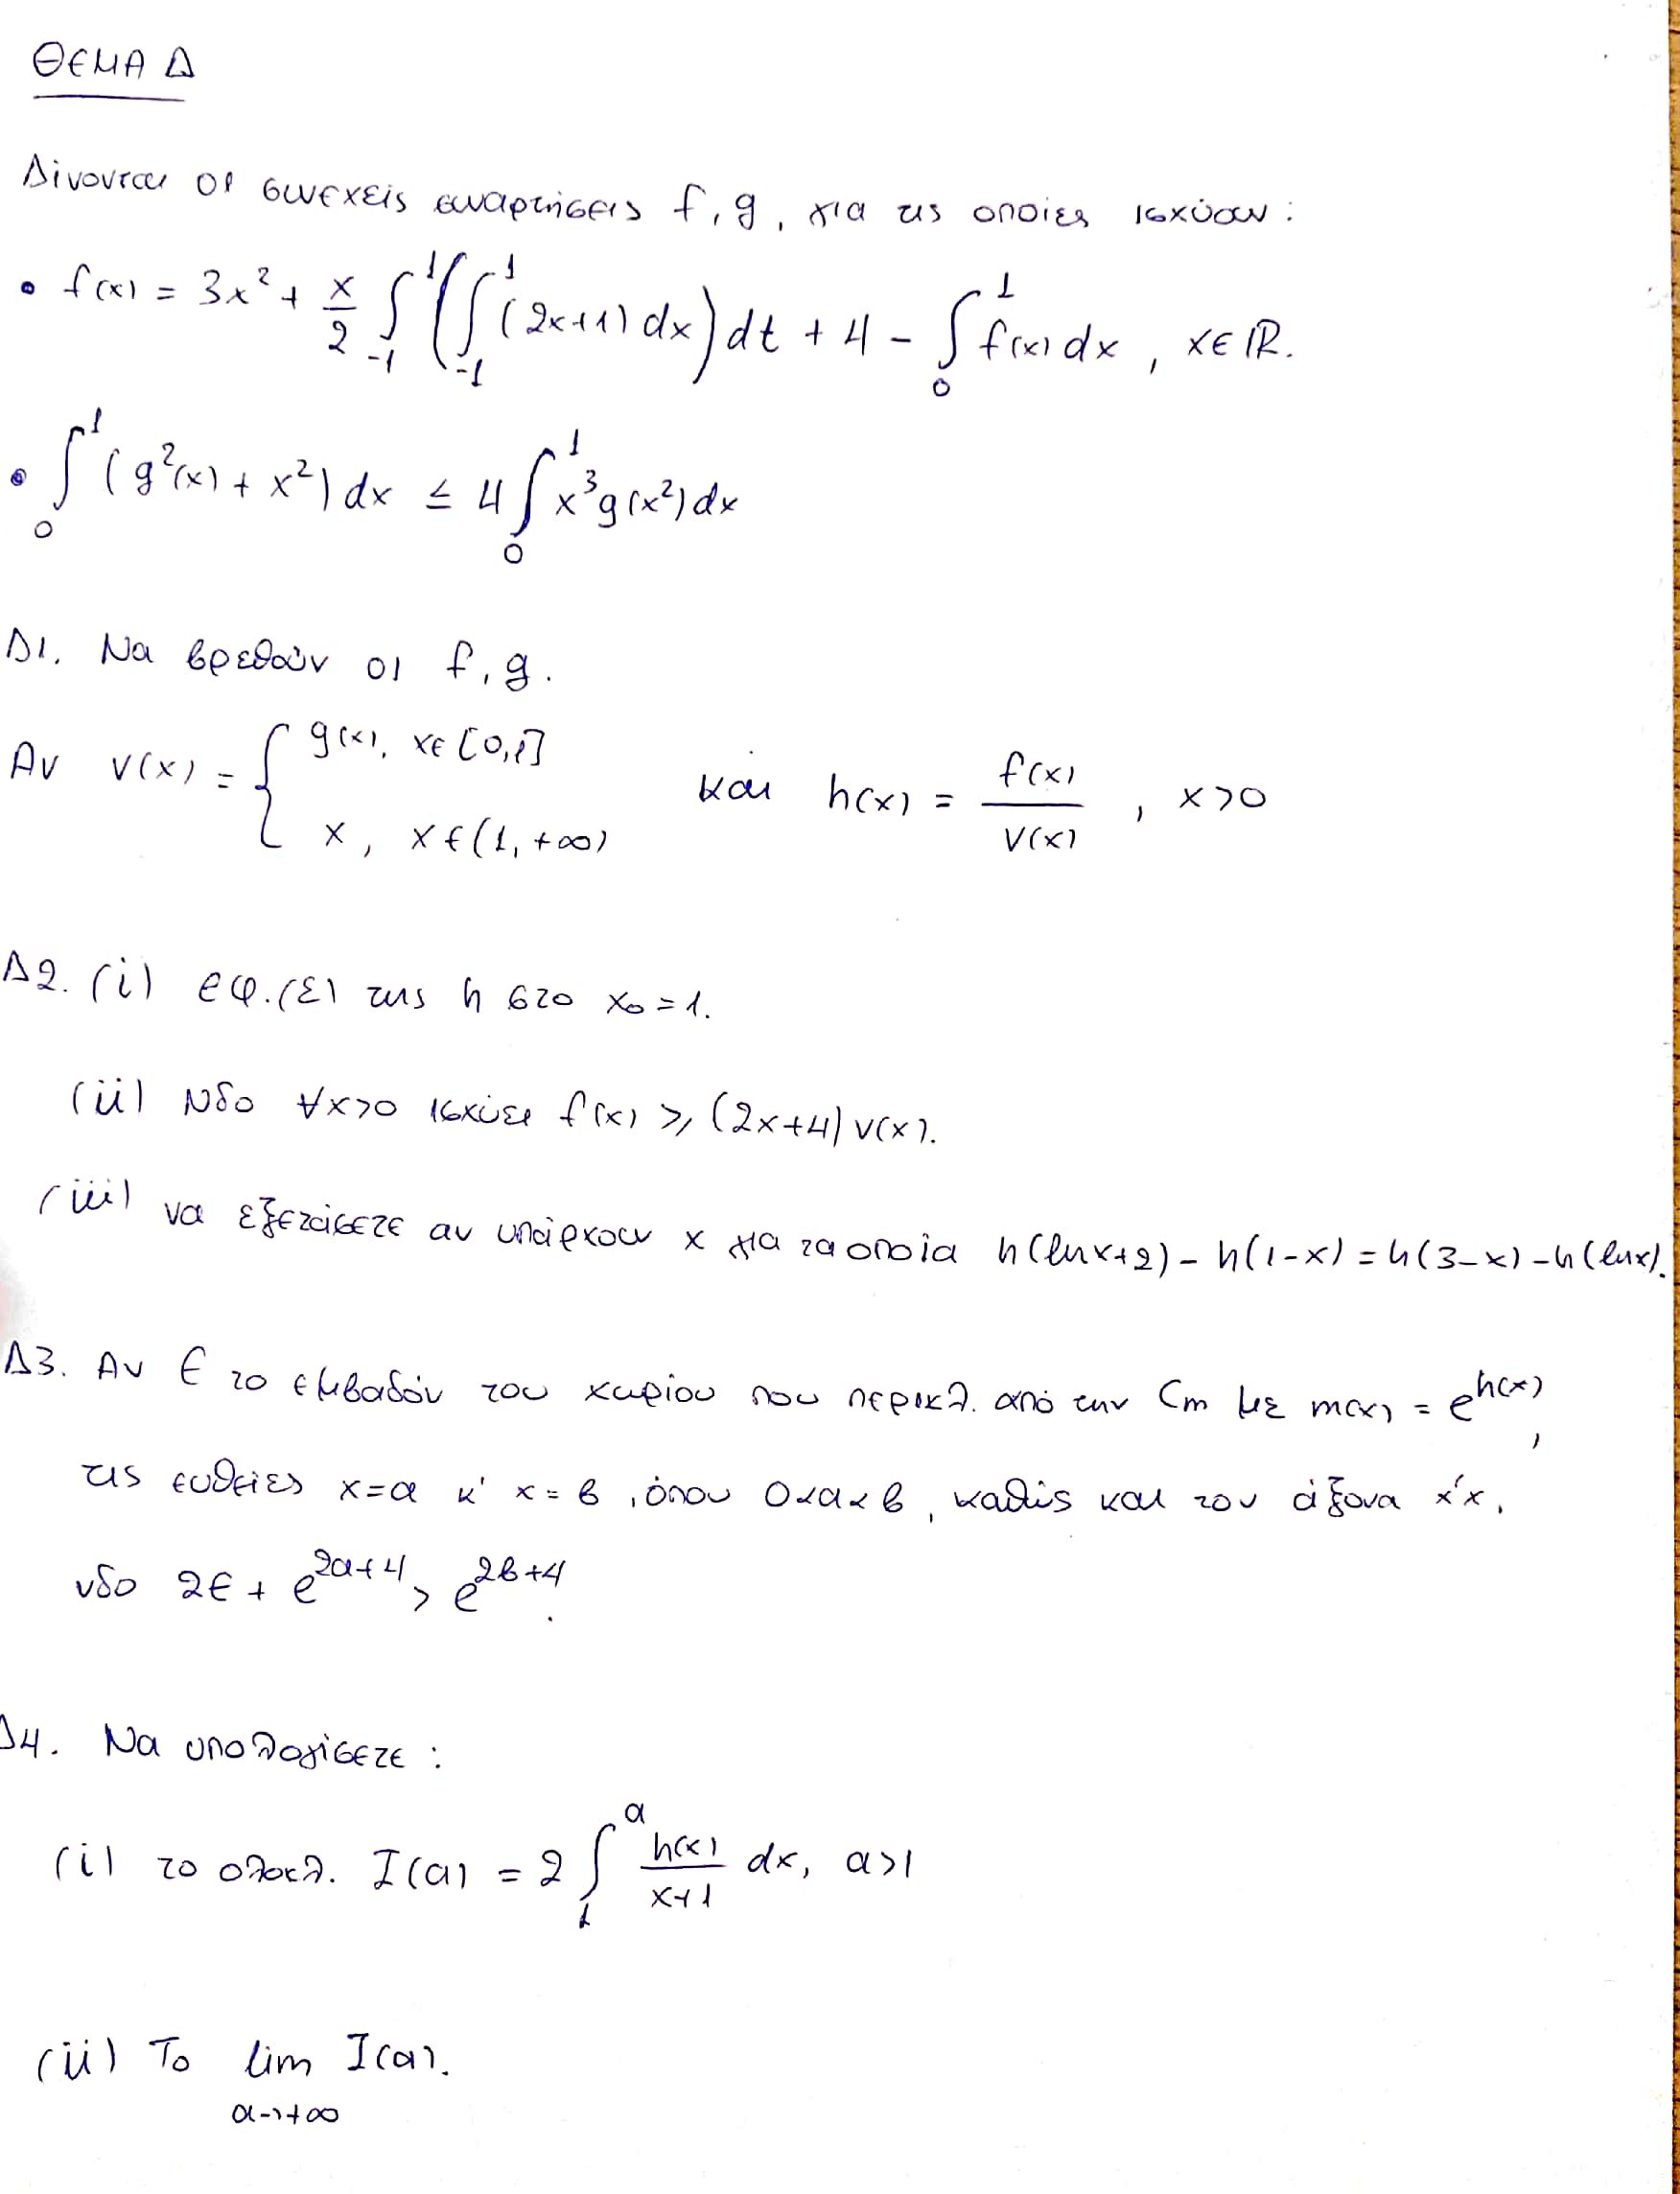 ΘΕΜΑ Δ
Δίνονται οι συνεχείς συναρτήσεις f, g, για τις οποίες ισχύουν:
• f(x) = 3x² + x/2 ∫_{-1}^{1} (∫_{-1}^{1} (2x+1) dx) dt + 4 - ∫_{0}^{1} f(x) dx, x∈ℝ.
• ∫_{0}^{1} (g²(x) + x²) dx ≤ 4 ∫_{0}^{1} x³g(x²) dx
Δ1. Να βρεθούν οι f, g.
Αν v(x) = { g(x), x∈[0,1] x, x∈(1,+∞) και h(x) = f(x)/v(x), x>0
Δ2. (i) εφ.(ε) της h στο x₀=1.
(ii) Νδο ∀x>0 ισχύει f(x) ≥ (2x+4)v(x).
(iii) να εξετάσετε αν υπάρχουν x για τα οποία h(lnx+2) - h(1-x) = h(3-x) - h(lnx).
Δ3. Αν Ε το εμβαδόν του χωρίου που περικλ. από την Cm με m(x) = e^{h(x)},
τις ευθείες x=α κ' x=β, όπου 0<α<β, καθώς και τον άξονα x'x,
νδο 2Ε + e^{2α+4} > e^{2β+4}.
Δ4. Να υπολογίσετε:
(i) το ολοκλ. I(α) = 2 ∫_{1}^{α} h(x)/(x+1) dx, α>1
(ii) Το lim_{α→+∞} I(α).